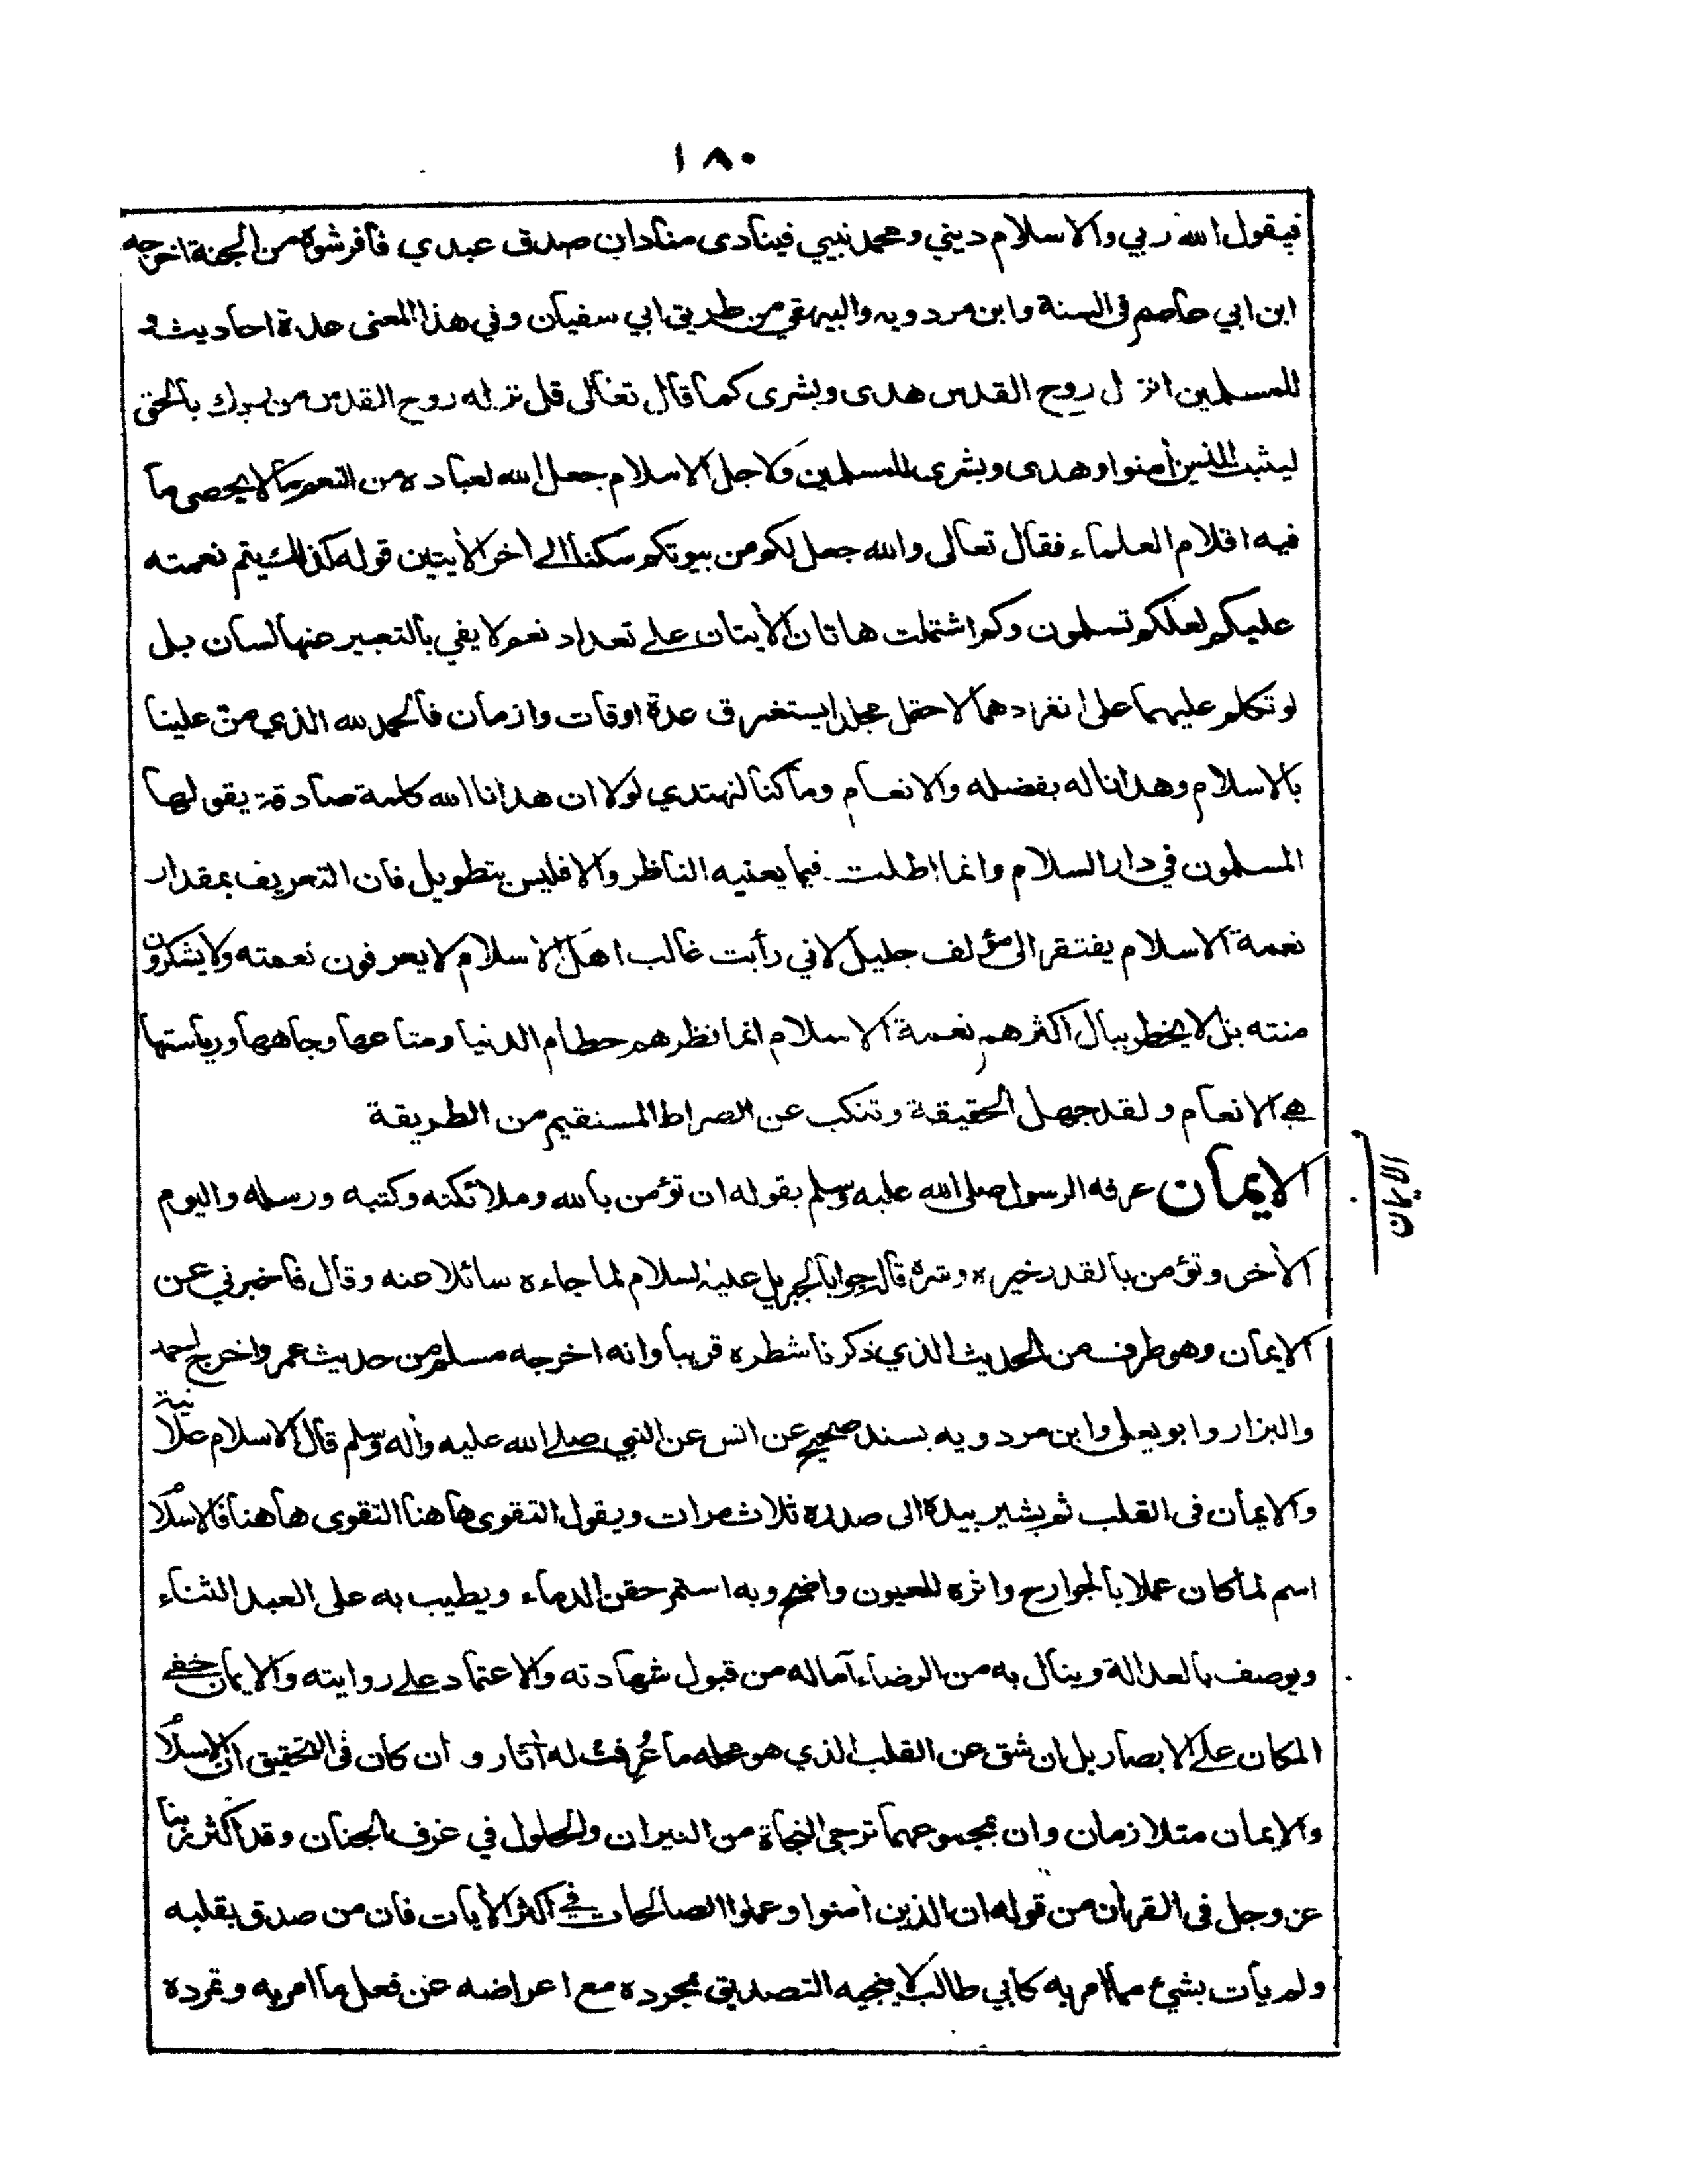 ١٨٠
فيقول الله ربي والاسلام ديني ومحمد نبيي فينادى منادان صدق عبدي فافرشوه من الجنة اخرجه
ابن ابي عاصم فى السنة وابن مردويه والبيهقي من طريق ابي سفيان وفي هذا المعنى عدة احاديث و
للمسلمين انزل روح القدس هدى وبشرى كما قال تعالى قل نزله روح القدس من ربك بالحق
ليثبت الذين أمنوا وهدى وبشرى للمسلمين ولاجل الاسلام جعل الله لعباده من النعم ما لا يحصى ما
فيه اقلام العلماء فقال تعالى والله جعل لكم من بيوتكم سكنا الى أخر الأيتين قوله كذلك يتم نعمته
عليكم لعلكم تسلمون وكم اشتملت هاتان الأيتان على تعداد نعم لا يفي بالتعبير عنها لسان بل
لو تكلم عليهما على انفرادهما لاحتمل مجلدا يستغرق عدة اوقات وازمان فالحمد لله الذي من علينا
بالاسلام وهدانا له بفضله والانعام وما كنا لنهتدي لولا ان هدانا الله كلمة صادقة يقولها
المسلمون في دار السلام وانما اطلت فيما يعنيه الناظر والا فليس بتطويل فان التعريف بمقدار
نعمة الاسلام يفتقر الى مؤلف جليل لاني رأيت غالب اهل الاسلام لا يعرفون نعمته ولا يشكرون
منته بل لا يخطر ببال اكثرهم نعمة الاسلام انما نظرهم حطام الدنيا ومتاعها وجاهها ورياستها
هي الانعام ولقد جهل الحقيقة وتنكب عن الصراط المستقيم من الطريقة
الايمان عرفه الرسول صلى الله عليه وسلم بقوله ان تؤمن بالله وملائكته وكتبه ورسله واليوم
الأخر وتؤمن بالقدر خيره وشره قال جوابا لجبريل عليه السلام لما جاءه سائلا عنه وقال فاخبرني عن
الايمان وهو طرف من الحديث الذي ذكرنا شطره قريبا وانه اخرجه مسلم من حديث عمر واخرج احمد
والبزار وابو يعلى وابن مردويه بسند صحيح عن انس عن النبي صلى الله عليه وأله وسلم قال الاسلام علانية
والايمان فى القلب ثم يشير بيده الى صدره ثلاث مرات ويقول التقوى ها هنا التقوى ها هنا فالاسلام
اسم لما كان عملا بالجوارح واثره للعيون واضح وبه استمر حقن الدماء ويطيب به على العبد الثناء
ويوصف بالعدالة وينال به من الرضاء آماله من قبول شهادته والاعتماد على روايته والايمان خفي
المكان على الابصار بل ان شق عن القلب الذي هو محله ما عُرفت له أثار و ان كان فى التحقيق ان الاسلام
والايمان متلازمان وان بمجموعهما ترجى النجاة من النيران والحلول في غرف الجنان وقد اكثر ربنا
عز وجل فى القرأن من قوله ان الذين أمنوا وعملوا الصالحات في اكثر الأيات فان من صدق بقلبه
ولم يأت بشيء مما امر به كابي طالب لا ينجيه التصديق بمجرده مع اعراضه عن فعل ما امر به وتمرده
الايمان